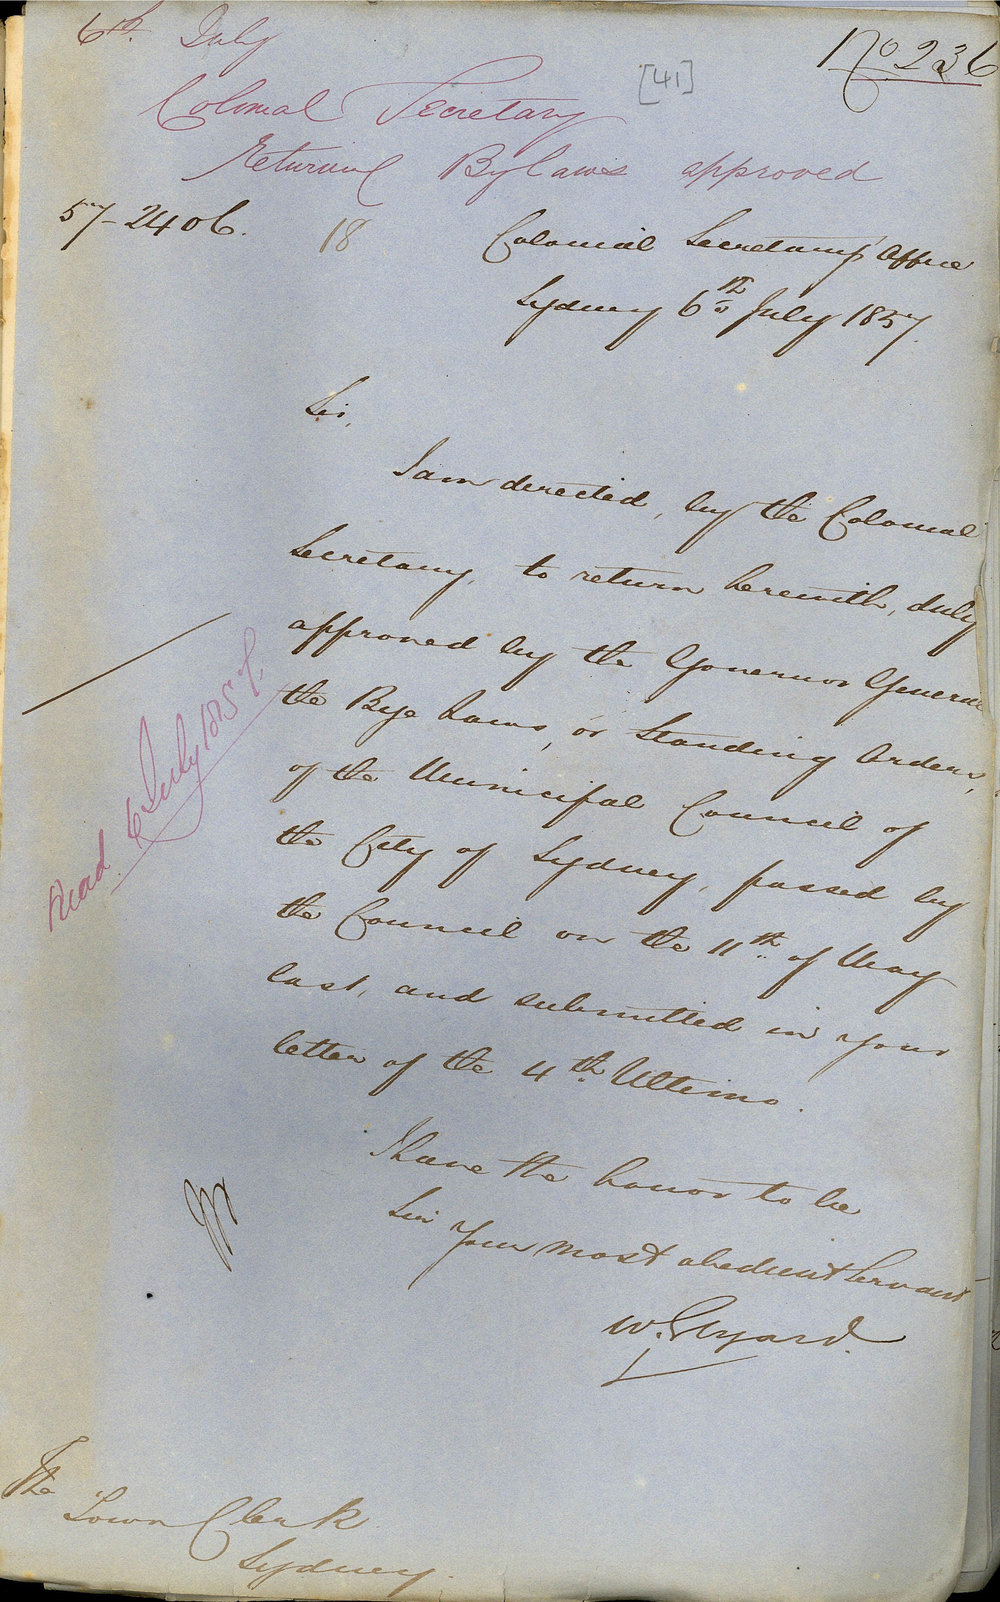 6th. July
No 236
[41]
Colonial Secretary
returning Bylaws approved
57-2406.
18
Colonial Secretary's Office
Sydney 6th July 1857.
Sir,
I am directed, by the Colonial
Secretary, to return herewith, duly
approved by the Governor General
the Bye Laws, or Standing Orders,
of the Municipal Council of
the City of Sydney, passed by
the Council on the 11th. of May
last, and submitted in your
letter of the 4th Ultimo.
Read 6 July 1857.
I have the honor to be
Sir
Your most obedient Servant
W. Elyard.
The
Town Clerk
Sydney.